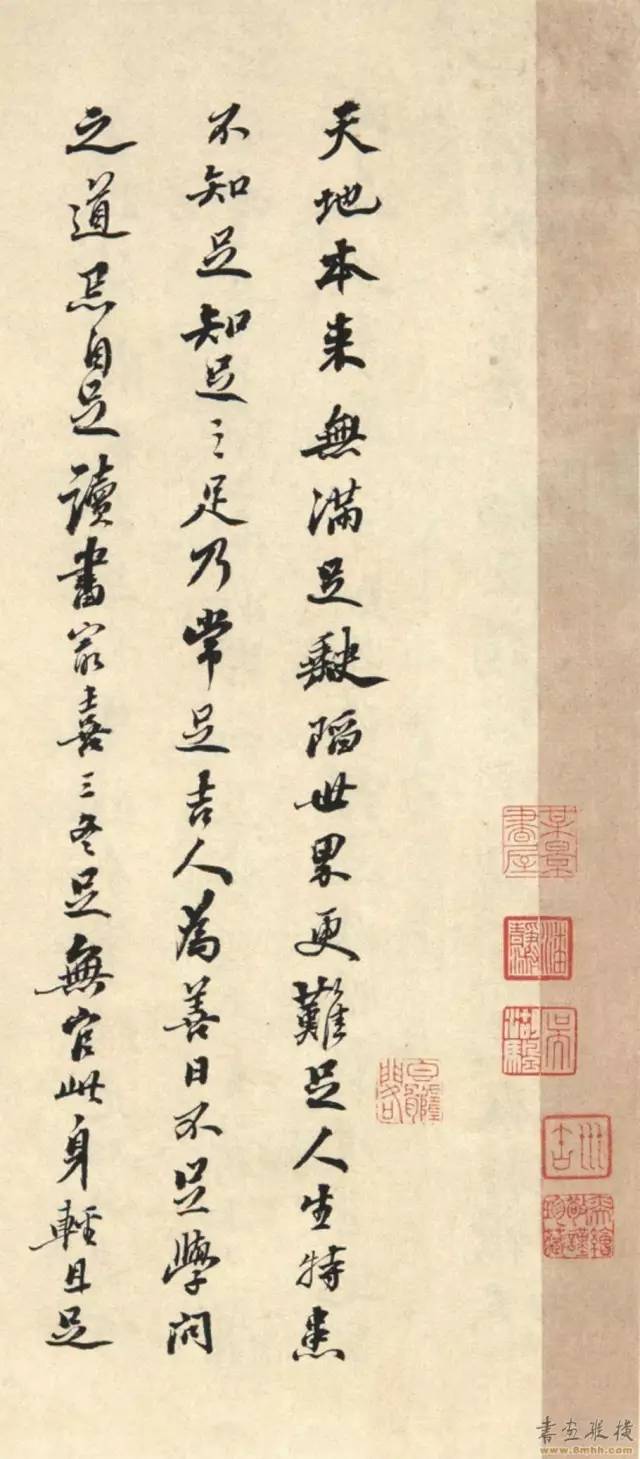 天地本来無满足缺陷世界更難足人生特患
不知足知足之足乃常足吉人為善日不足學问
之道忌自足讀書最喜三冬足無官此身輕且足
書画縱横
www.8mhh.com